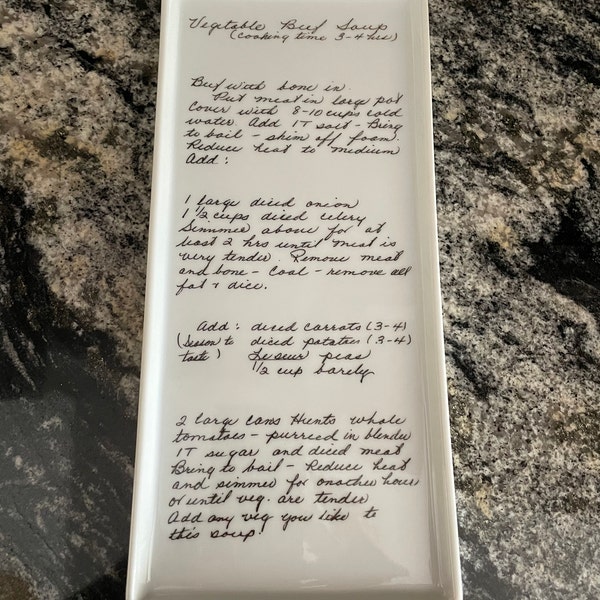 Vegetable Beef Soup
(cooking time 3-4 hrs)
Beef with bone in.
Put meat in large pot
cover with 8-10 cups cold
water. Add 1T salt - Bring
to boil - skim off foam
Reduce heat to medium
Add:
1 large diced onion
1 1/2 cups diced celery
Simmer above for at
least 2 hrs until meat is
very tender. Remove meat
and bone - Cool - remove all
fat & dice.
Add: diced carrots (3-4)
(Season to diced potatoes (3-4)
taste) Lesueur peas
1/2 cup barely
2 large cans Hunts whole
tomatoes - purreed in blender
1T sugar and diced meat
Bring to boil - Reduce heat
and simmer for another hour
or until veg. are tender
Add any veg you like to
this soup!